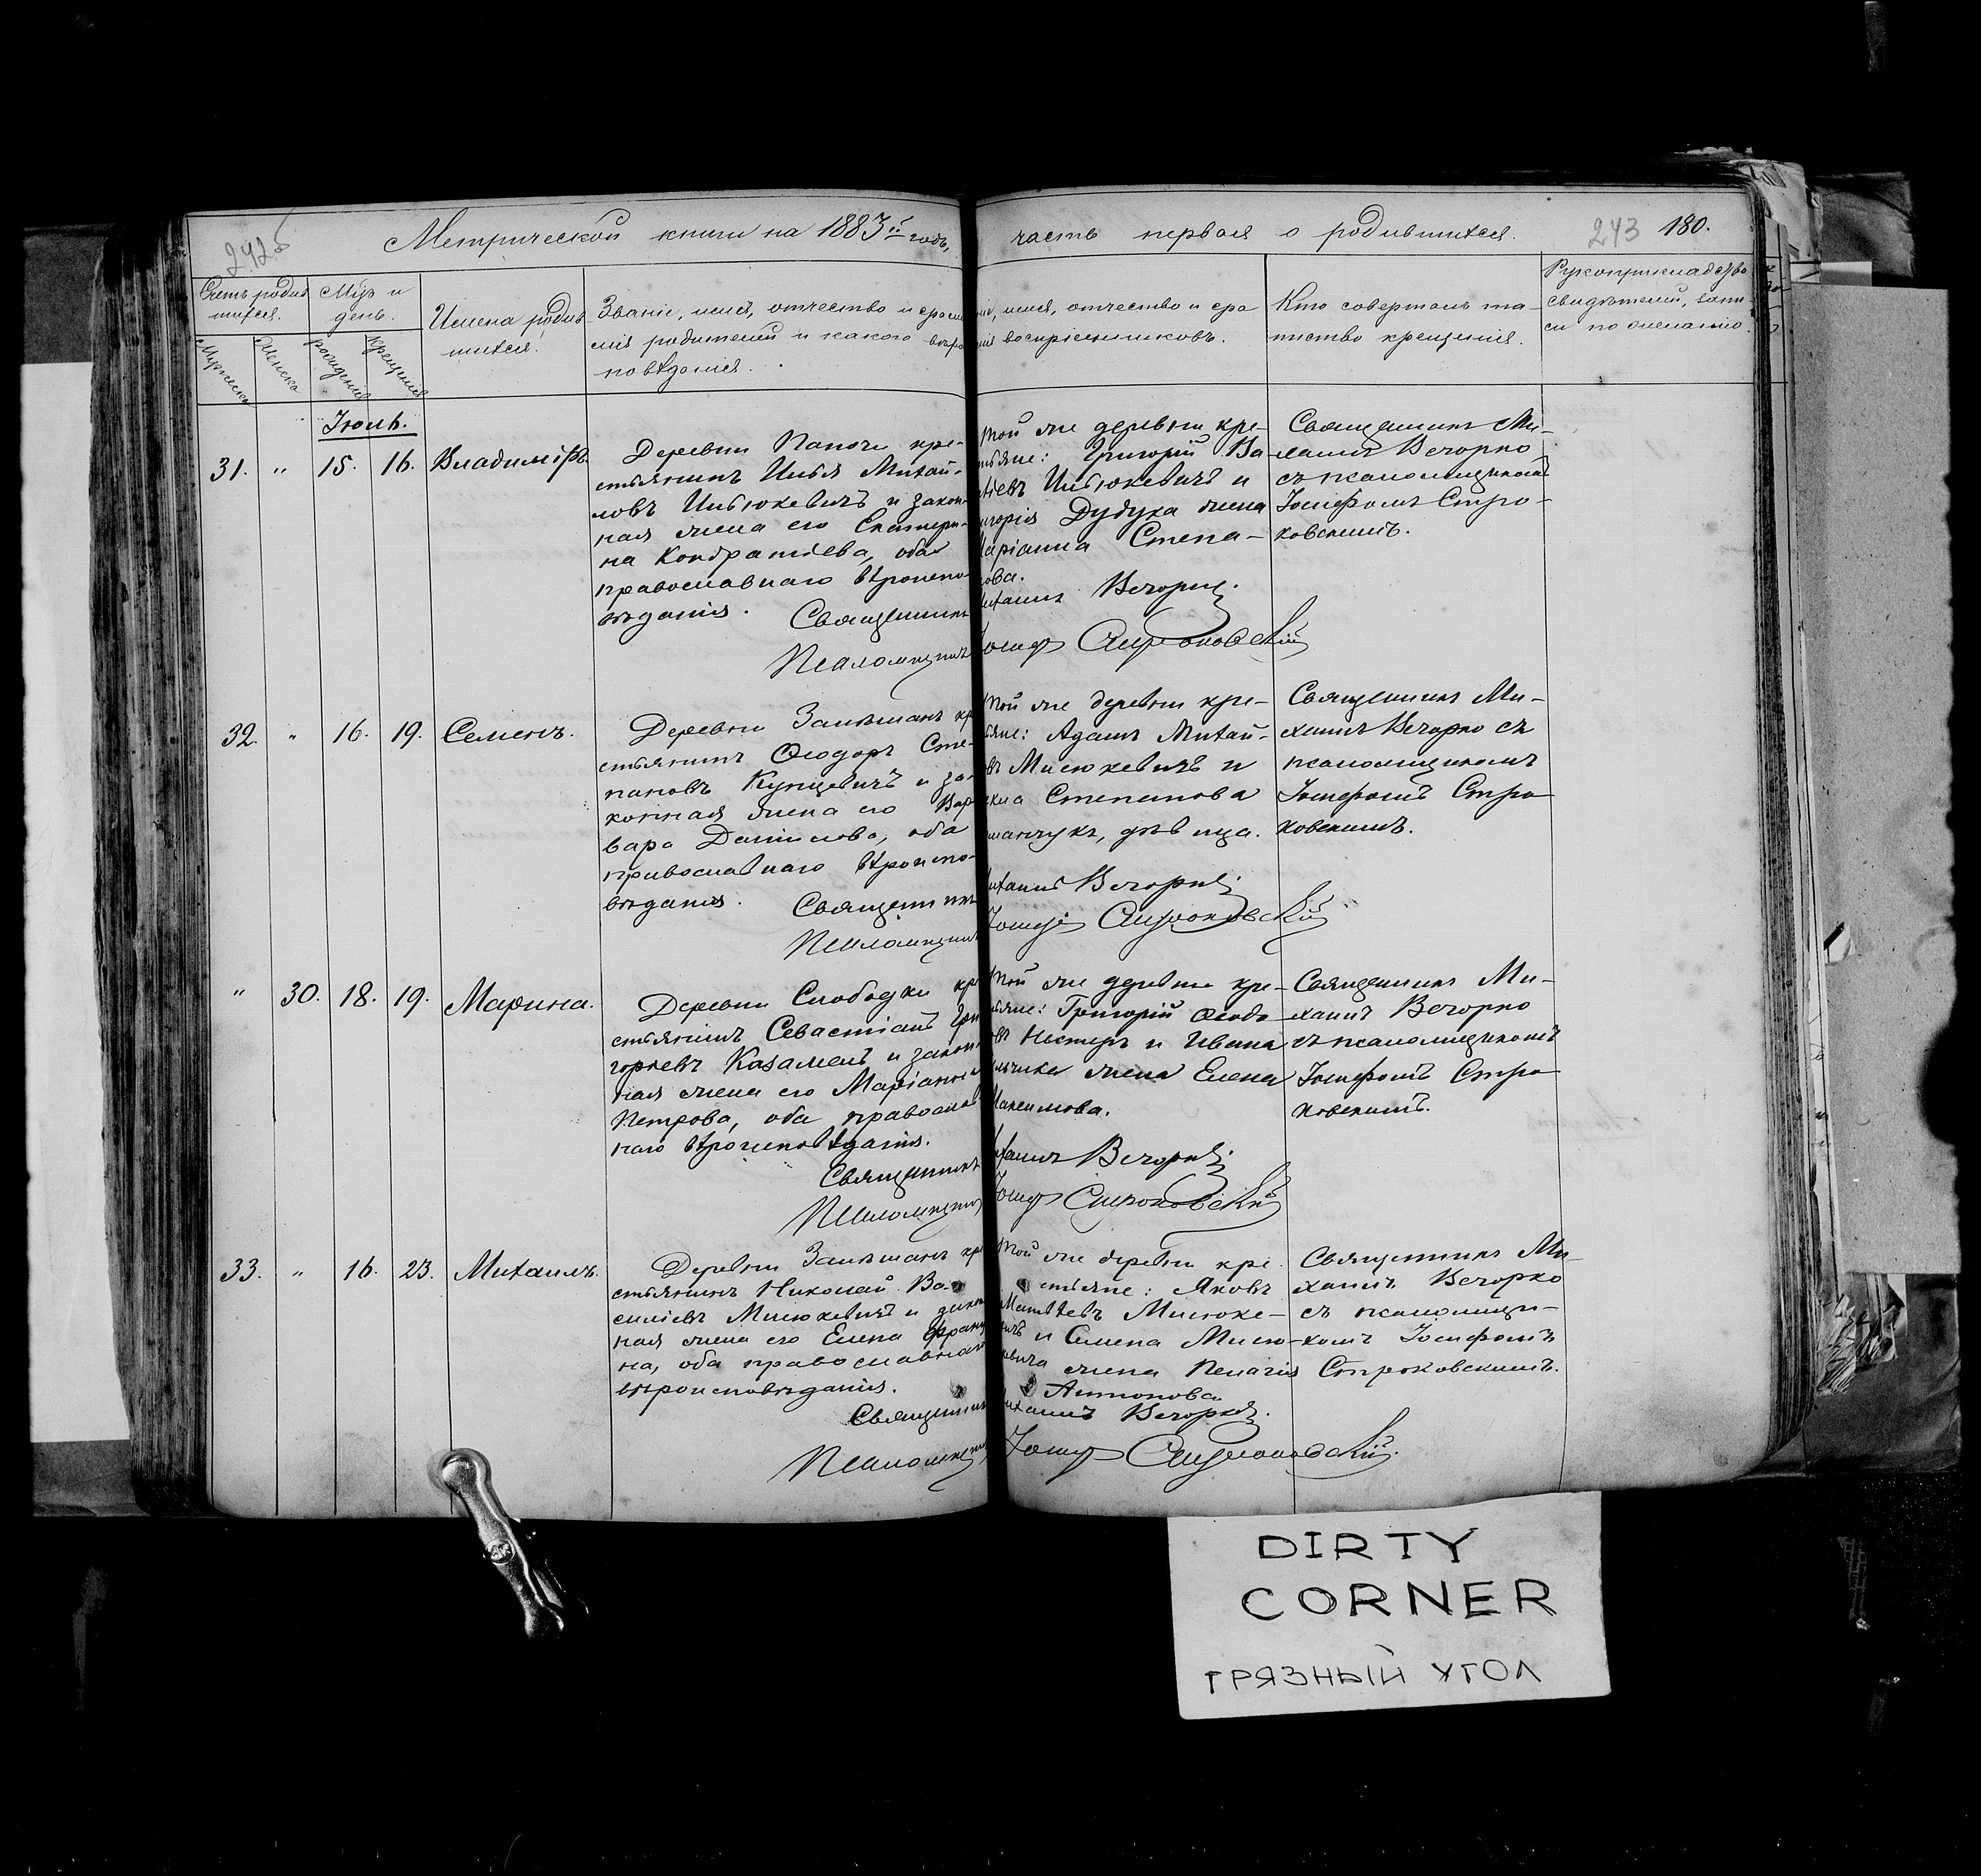 242б
Метрической книги на 1883й годъ,
часть первая о родившихся.
243 180.
Счетъ родив
шихся.
Мужеска
Женска
Мцъ и
день.
рожденія
крещенія
Имена родив
шихся.
Званіе, имя, отчество и фами
лія родителей и какого вѣро
повѣданія.
имя, отчество и фа
лія воспріемниковъ.
Кто совершалъ та-
инство крещенія.
Рукоприкладство
свидѣтелей, запи-
си по желанію.
Іюль.
31. " 15. 16. Владиміръ.
Деревни Папочи кре-
стьянинъ Илья Михай-
ловъ и закон
ная жена его Екатери-
на Кондратіева, оба
православнаго вѣроиспо-
вѣданія.
Священникъ
Псаломщикъ
той же деревни кре-
стьяне: Григорій Ва-
и
Дудука жена
Маріанна Степа-
нова.
Михаилъ Вечорко.
Іосифъ Строковскій
Священникъ Ми-
хаилъ Вечорко
съ псаломщикомъ
Іосифомъ Стро-
ковскимъ.
32. " 16. 19. Семенъ.
Деревни кр
стьянинъ Ѳеодоръ Сте-
пановъ Купцевичъ и за-
конная жена его Вар
вара Данилова, оба
православнаго вѣроиспо-
вѣданія.
Священникъ
Псаломщикъ
той же деревни кре-
стьяне: Адамъ Михай-
въ Мисюкевичъ и
Степанова
дѣвица.
Михаилъ Вечорко.
Іосифъ Строковскій
Священникъ Ми-
хаилъ Вечорко съ
псаломщикомъ
Іосифомъ Стро
ковскимъ.
" 30. 18. 19. Марина.
Деревни Слободки кр
стьянинъ Севастіанъ Гри
горьевъ Казамель и закон
ная жена его Маріанна
Петрова, оба православ
наго вѣроисповѣданія.
Священникъ
Псаломщикъ
той же деревни кре-
стьяне: Григорій Ѳеодо-
въ Нестеръ и Ивана
жена Елена
Максимова.
Михаилъ Вечорко.
Іосифъ Строковскій
Священникъ Ми-
хаилъ Вечорко
съ псаломщикомъ
Іосифомъ Стро
ковскимъ.
33. " 16. 23. Михаилъ.
Деревни кре
стьянинъ Николай Ва-
сильевъ Мисюкевичъ и закон
ная жена его Елена Франц
на, оба православнаго
вѣроисповѣданія.
Священникъ
Псаломщикъ
той же деревни кре
стьяне: Яковъ
Матвѣевъ Мисюке-
вичъ и Семена Мисю-
кевича жена Пелагія
Антонова
Михаилъ Вечорко.
Іосифъ Строковскій.
Священникъ Ми
хаилъ Вечорко
съ псаломщи-
комъ Іосифомъ
Строковскимъ.
DIRTY
CORNER
ГРЯЗНЫЙ УГОЛ